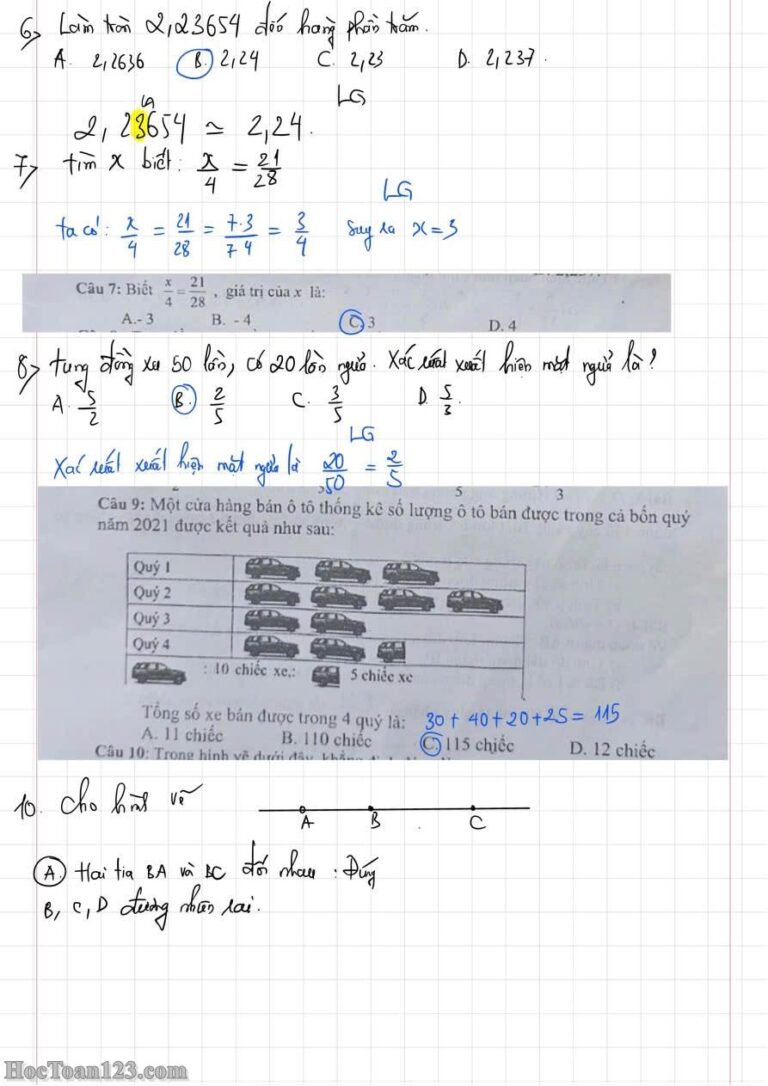 6> Làm tròn 2,23654 đến hàng phần trăm.
A. 2,2636 B. 2,24 C. 2,23 D. 2,237.
LG
2,23654 ≃ 2,24.
7> tìm x biết: x/4 = 21/28
LG
ta có: x/4 = 21/28 = 7.3/7 4 = 3/4 Suy ra x = 3
Câu 7: Biết x/4 = 21/28, giá trị của x là:
A.- 3 B. - 4 C. 3 D. 4
8> tung đồng xu 50 lần, có 20 lần ngửa. Xác suất xuất hiện mặt ngửa là?
A. 5/2 B. 2/5 C. 3/5 D. 5/3.
LG
Xác suất xuất hiện mặt ngửa là 20/50 = 2/5
5 3
Câu 9: Một cửa hàng bán ô tô thống kê số lượng ô tô bán được trong cả bốn quý
năm 2021 được kết quả như sau:
Quý 1
Quý 2
Quý 3
Quý 4
: 10 chiếc xe,: 5 chiếc xe
Tổng số xe bán được trong 4 quý là: 30 + 40 + 20 + 25 = 115
A. 11 chiếc B. 110 chiếc C. 115 chiếc D. 12 chiếc
Câu 10: Trong hình vẽ dưới đây,
10. Cho hình vẽ
A B C
A. Hai tia BA và BC đối nhau : Đúng
B, C, D đương nhiên sai.
HocToan123.com